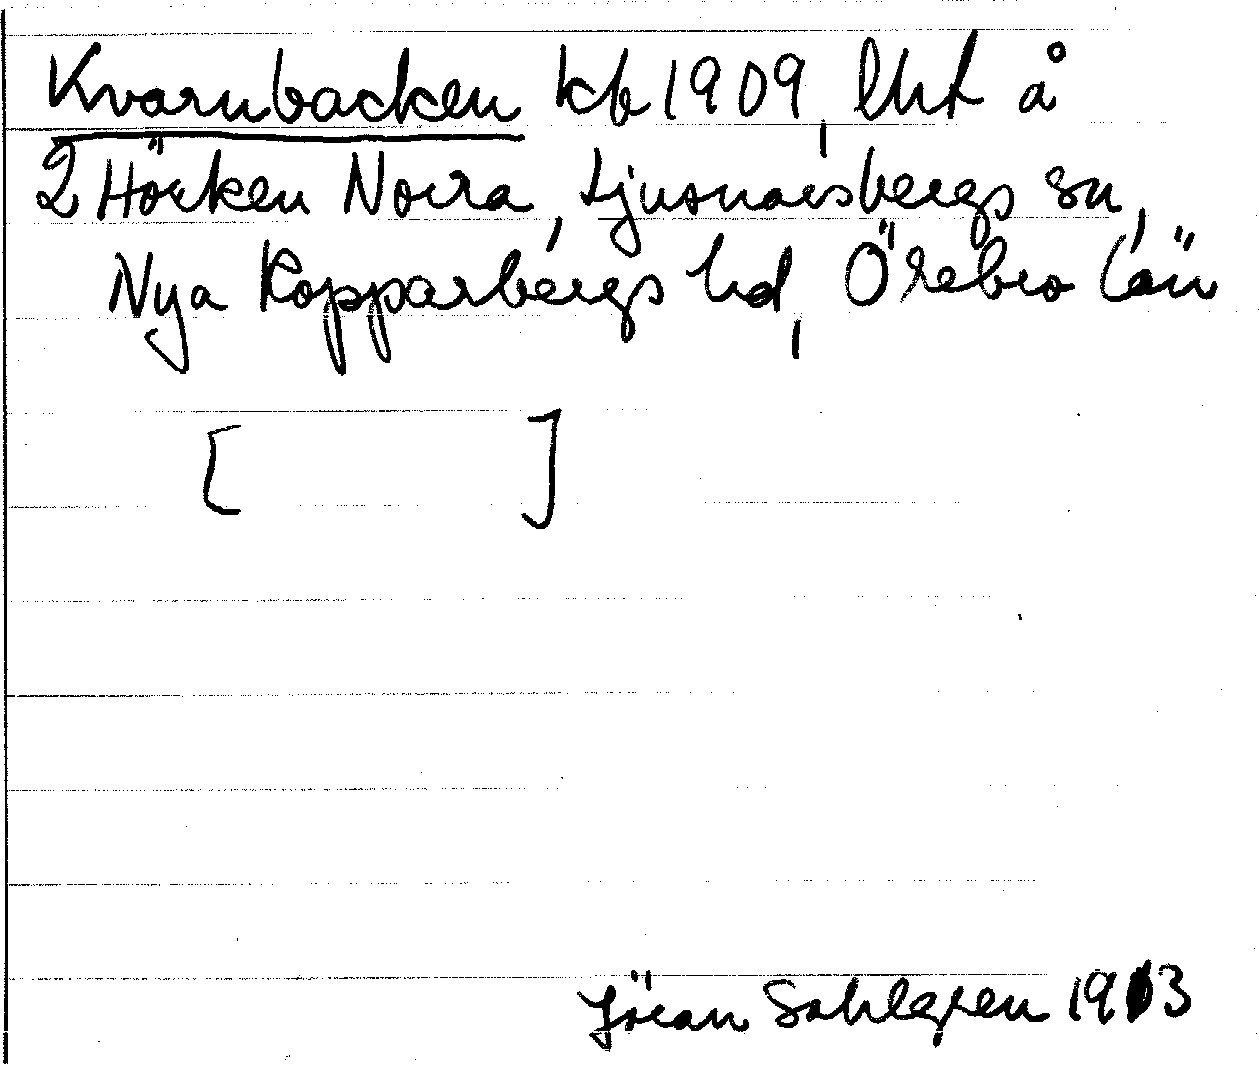 Kvarnbacken kb 1909, lht å
2 Hörken Norra, Ljusnarsbergs sn,
Nya Kopparbergs hd, Örebro län
[ ]
Jöran Sahlgren 1913